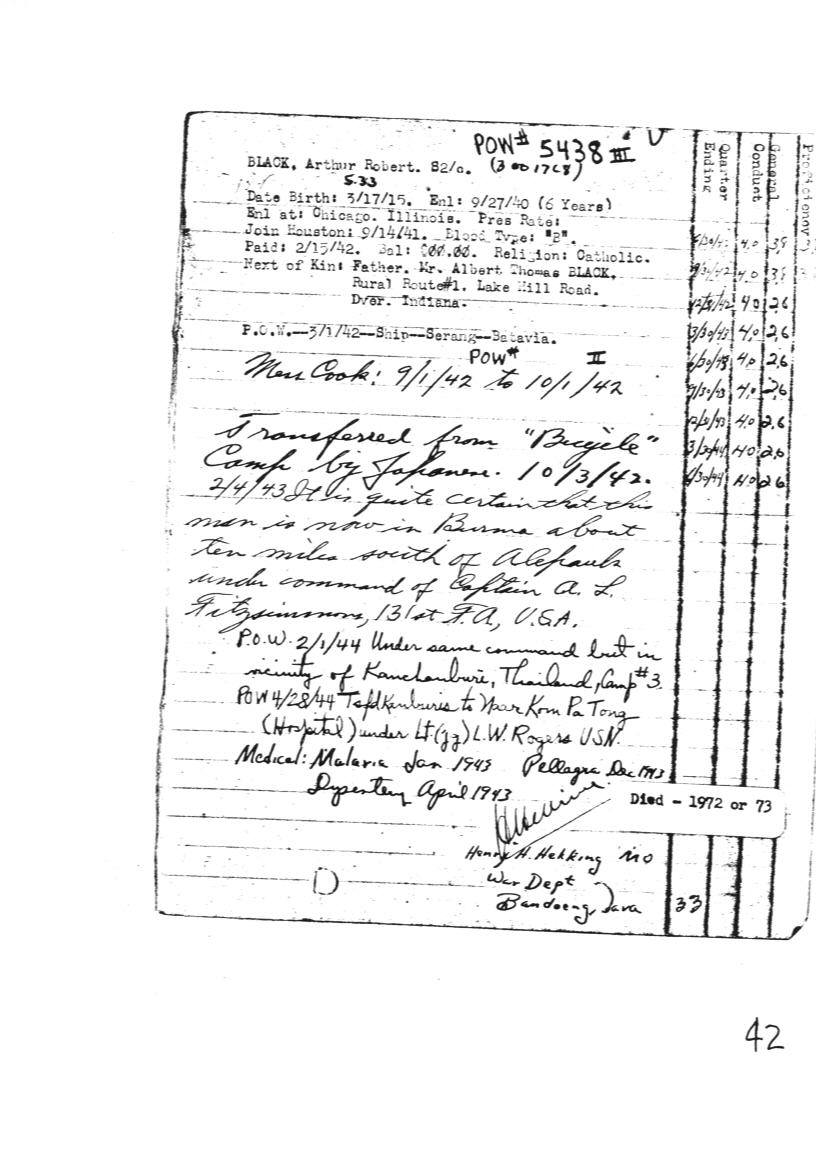 POW# 5438 III
BLACK, Arthur Robert. S2/c. (3001768)
5.33
Date Birth: 3/17/15. Enl: 9/27/40 (6 Years)
Enl at: Chicago. Illinois. Pres Rate:
Join Houston: 9/14/41. Blood Type: "B".
Paid: 2/15/42. Bal: $00.00. Religion: Catholic.
Next of Kin: Father. Mr. Albert Thomas BLACK.
Rural Route#1. Lake Hill Road.
Dyer. Indiana.
P.O.W.--3/1/42--Ship--Serang--Batavia.
POW# II
Mess Cook: 9/1/42 to 10/1/42
Transferred from "Bicycle"
Camp by Japanese. 10/3/42.
2/4/43 It is quite certain that this
man is now in Burma about
ten miles south of
under command of Captain A. L.
Fitzsimmons, 131st F.A., U.S.A.
P.O.W. 2/1/44 Under same command but in
vicinity of Kanchanburi, Thailand, Camp #3.
POW 4/28/44 Tsfd Kanburi to Near Kom Pa Tong
(Hospital) under Lt (jg) L.W. Rogers USN.
Medical: Malaria Jan 1943 Pellagra Dec 1943
Dysentery April 1943
Died - 1972 or 73
Henry H. Hekking MO
War Dept
Bandoeng, Java
D
33
Quarter Ending
Conduct
General
Proficiency
4.0
4.0
12/31/42 4.0 2.6
3/30/43 4.0 2.6
6/30/43 4.0 2.6
9/30/43 4.0 2.6
12/31/43 4.0 2.6
3/30/44 4.0 2.6
6/30/44 4.0 2.6
42